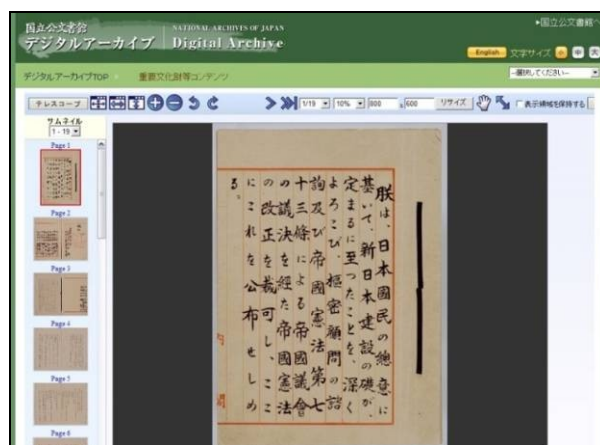 国立公文書館
デジタルアーカイブ
NATIONAL ARCHIVES OF JAPAN
Digital Archive
▸国立公文書館へ
English 文字サイズ 小 中 大
デジタルアーカイブTOP
重要文化財等コンテンツ
--選択してください--
テレスコープ
1/19
10%
800
x 600
リサイズ
表示領域を保持する
サムネイル
1 - 19
Page 1
Page 2
Page 3
Page 4
Page 5
Page 6
朕は、日本國民の總意に
基いて、新日本建設の礎が、
定まるに至つたことを、深く
よろこび、樞密顧問の諮
詢及び帝國憲法第七
十三條による帝國議會
の議決を經た帝國憲法
の改正を裁可し、ここ
にこれを公布せしめ
る。
内
閣